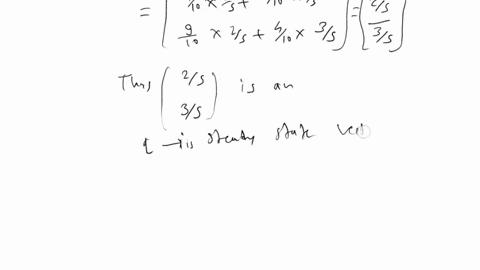 = [ /10 × 2/5 + /10 ×
9/10 × 2/5 + 4/10 × 3/5 ] = [ 2/5 3/5 ]
This ( 2/5
3/5 ) is an
q → is steady state vect